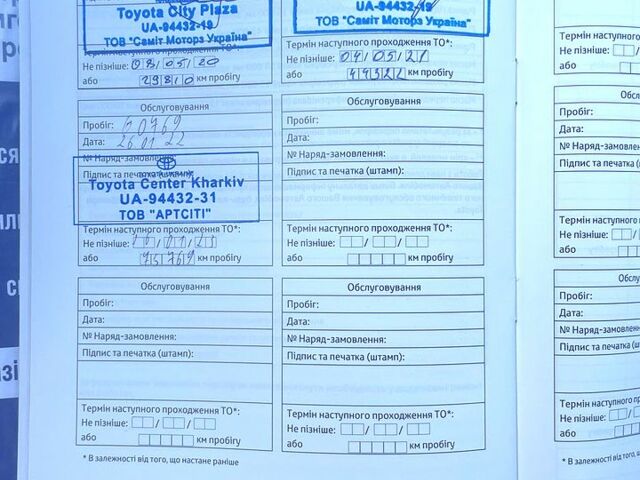 Toyota City Plaza
UA-94432-19
ТОВ "Саміт Моторз Україна"
Термін наступного проходження ТО*:
Не пізніше: 08/05/20
або 29810 км пробігу
UA-94432-19
ТОВ "Саміт Моторз Україна"
Термін наступного проходження ТО*:
Не пізніше: 04/05/21
або 44322 км пробігу
Обслуговування
Пробіг: 60769
Дата: 26 01 22
№ Наряд-замовлення:
Підпис та печатка (штамп):
TOYOTA
Toyota Center Kharkiv
UA-94432-31
ТОВ "АРТСІТІ"
Термін наступного проходження ТО*:
Не пізніше:
або 75769 км пробігу
Обслуговування
Пробіг:
Дата:
№ Наряд-замовлення:
Підпис та печатка (штамп):
Термін наступного проходження ТО*:
Не пізніше: / /
або км пробігу
Обслуговування
Пробіг:
Дата:
№ Наряд-замовлення:
Підпис та печатка (штамп):
Термін наступного проходження ТО*:
Не пізніше: / /
або км пробігу
Обслуговування
Пробіг:
Дата:
№ Наряд-замовлення:
Підпис та печатка (штамп):
Термін наступного проходження ТО*:
Не пізніше: / /
або км пробігу
* В залежності від того, що настане раніше
Термін наступного
Не пізніше:
або
Обслу
Пробіг:
Дата:
№ Наряд-замовлення:
Підпис та печатка (шт
Термін наступного
Не пізніше:
або
Обслу
Пробіг:
Дата:
№ Наряд-замовлення:
Підпис та печатка
Термін наступного
Не пізніше:
або